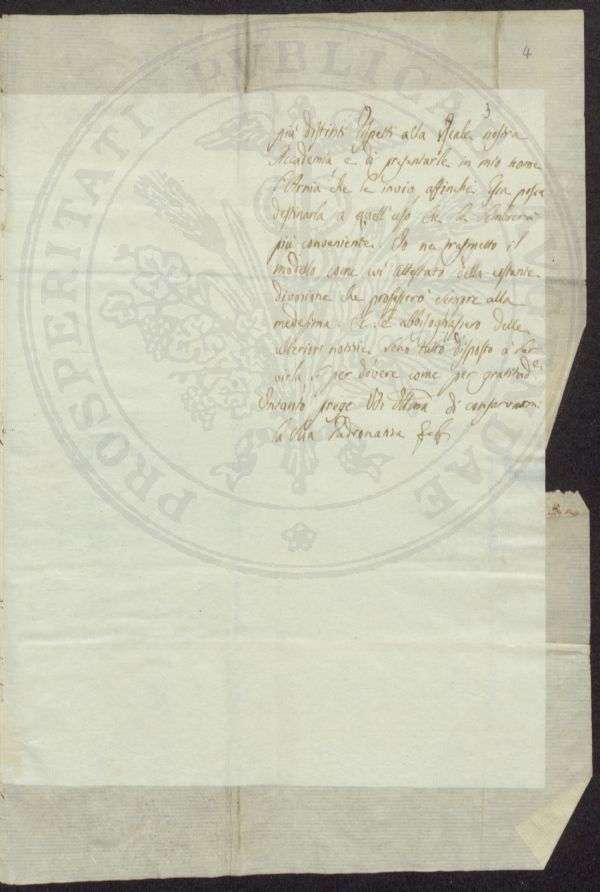 4
3
più distinti rispetti alla Reale nostra
Accademia e di presentarle in mio nome
l'Arnia che le invio affinchè Essa possa
destinarla a quell'uso che le sembrerà
più conveniente. Io ne trasmetto il
modello come un' attestato della costante
divozione che professerò sempre alla
medesima. Se abbisognassero delle
ulteriori notizie sono tutto disposto a ser
virla sì per dovere come per gratitude
Intanto prego di conservarmi
la sua Padronanza
PROSPERITATI PUBLICAE AUGENDAE